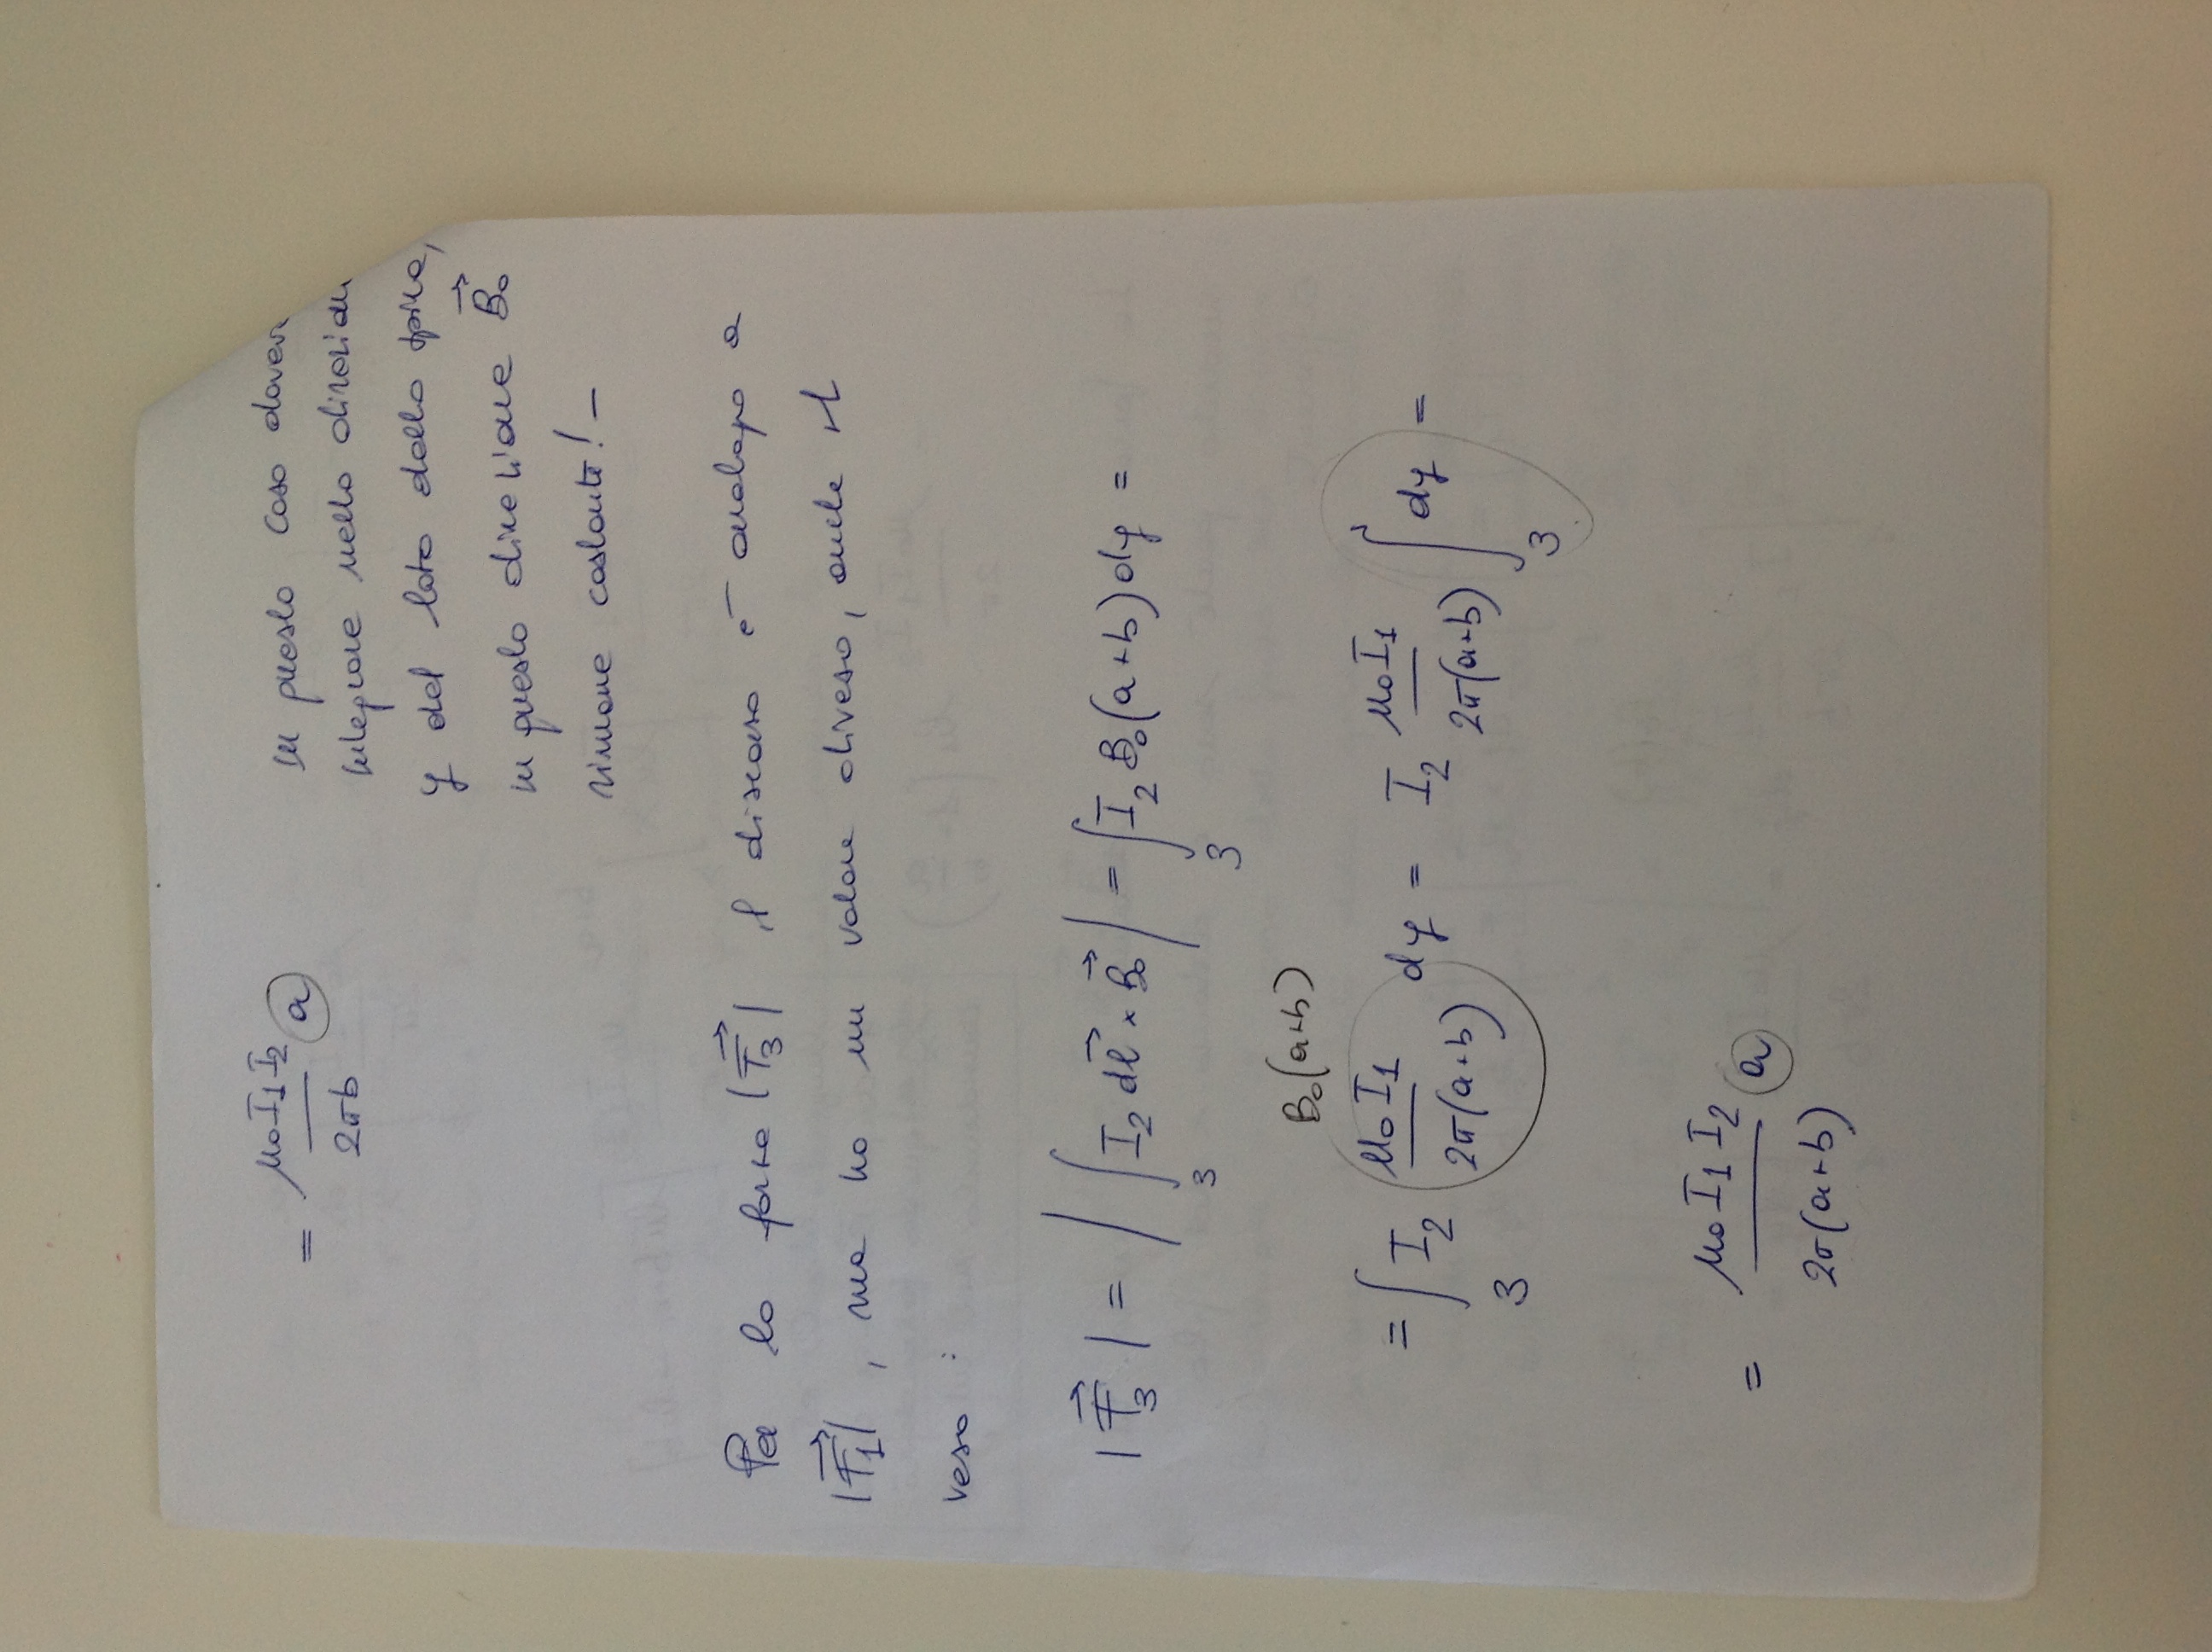 = μ₀I₁I₂ / 2πb a
In questo caso dover
integrare nella direzion
y del lato della spira,
in questa direzione B₀⃗
rimane costante! –
Per la forza |F₃⃗| il discorso è analogo a
|F₁⃗|, ma ha un valore diverso, anche il
verso :
|F₃⃗| = | ∫₃ I₂ dl⃗ × B₀⃗ | = ∫₃ I₂ B₀(a+b) dy =
B₀(a+b)
= ∫₃ I₂ μ₀I₁ / 2π(a+b) dy = I₂ μ₀I₁ / 2π(a+b) ∫₃ dy =
= μ₀I₁I₂ / 2π(a+b) a